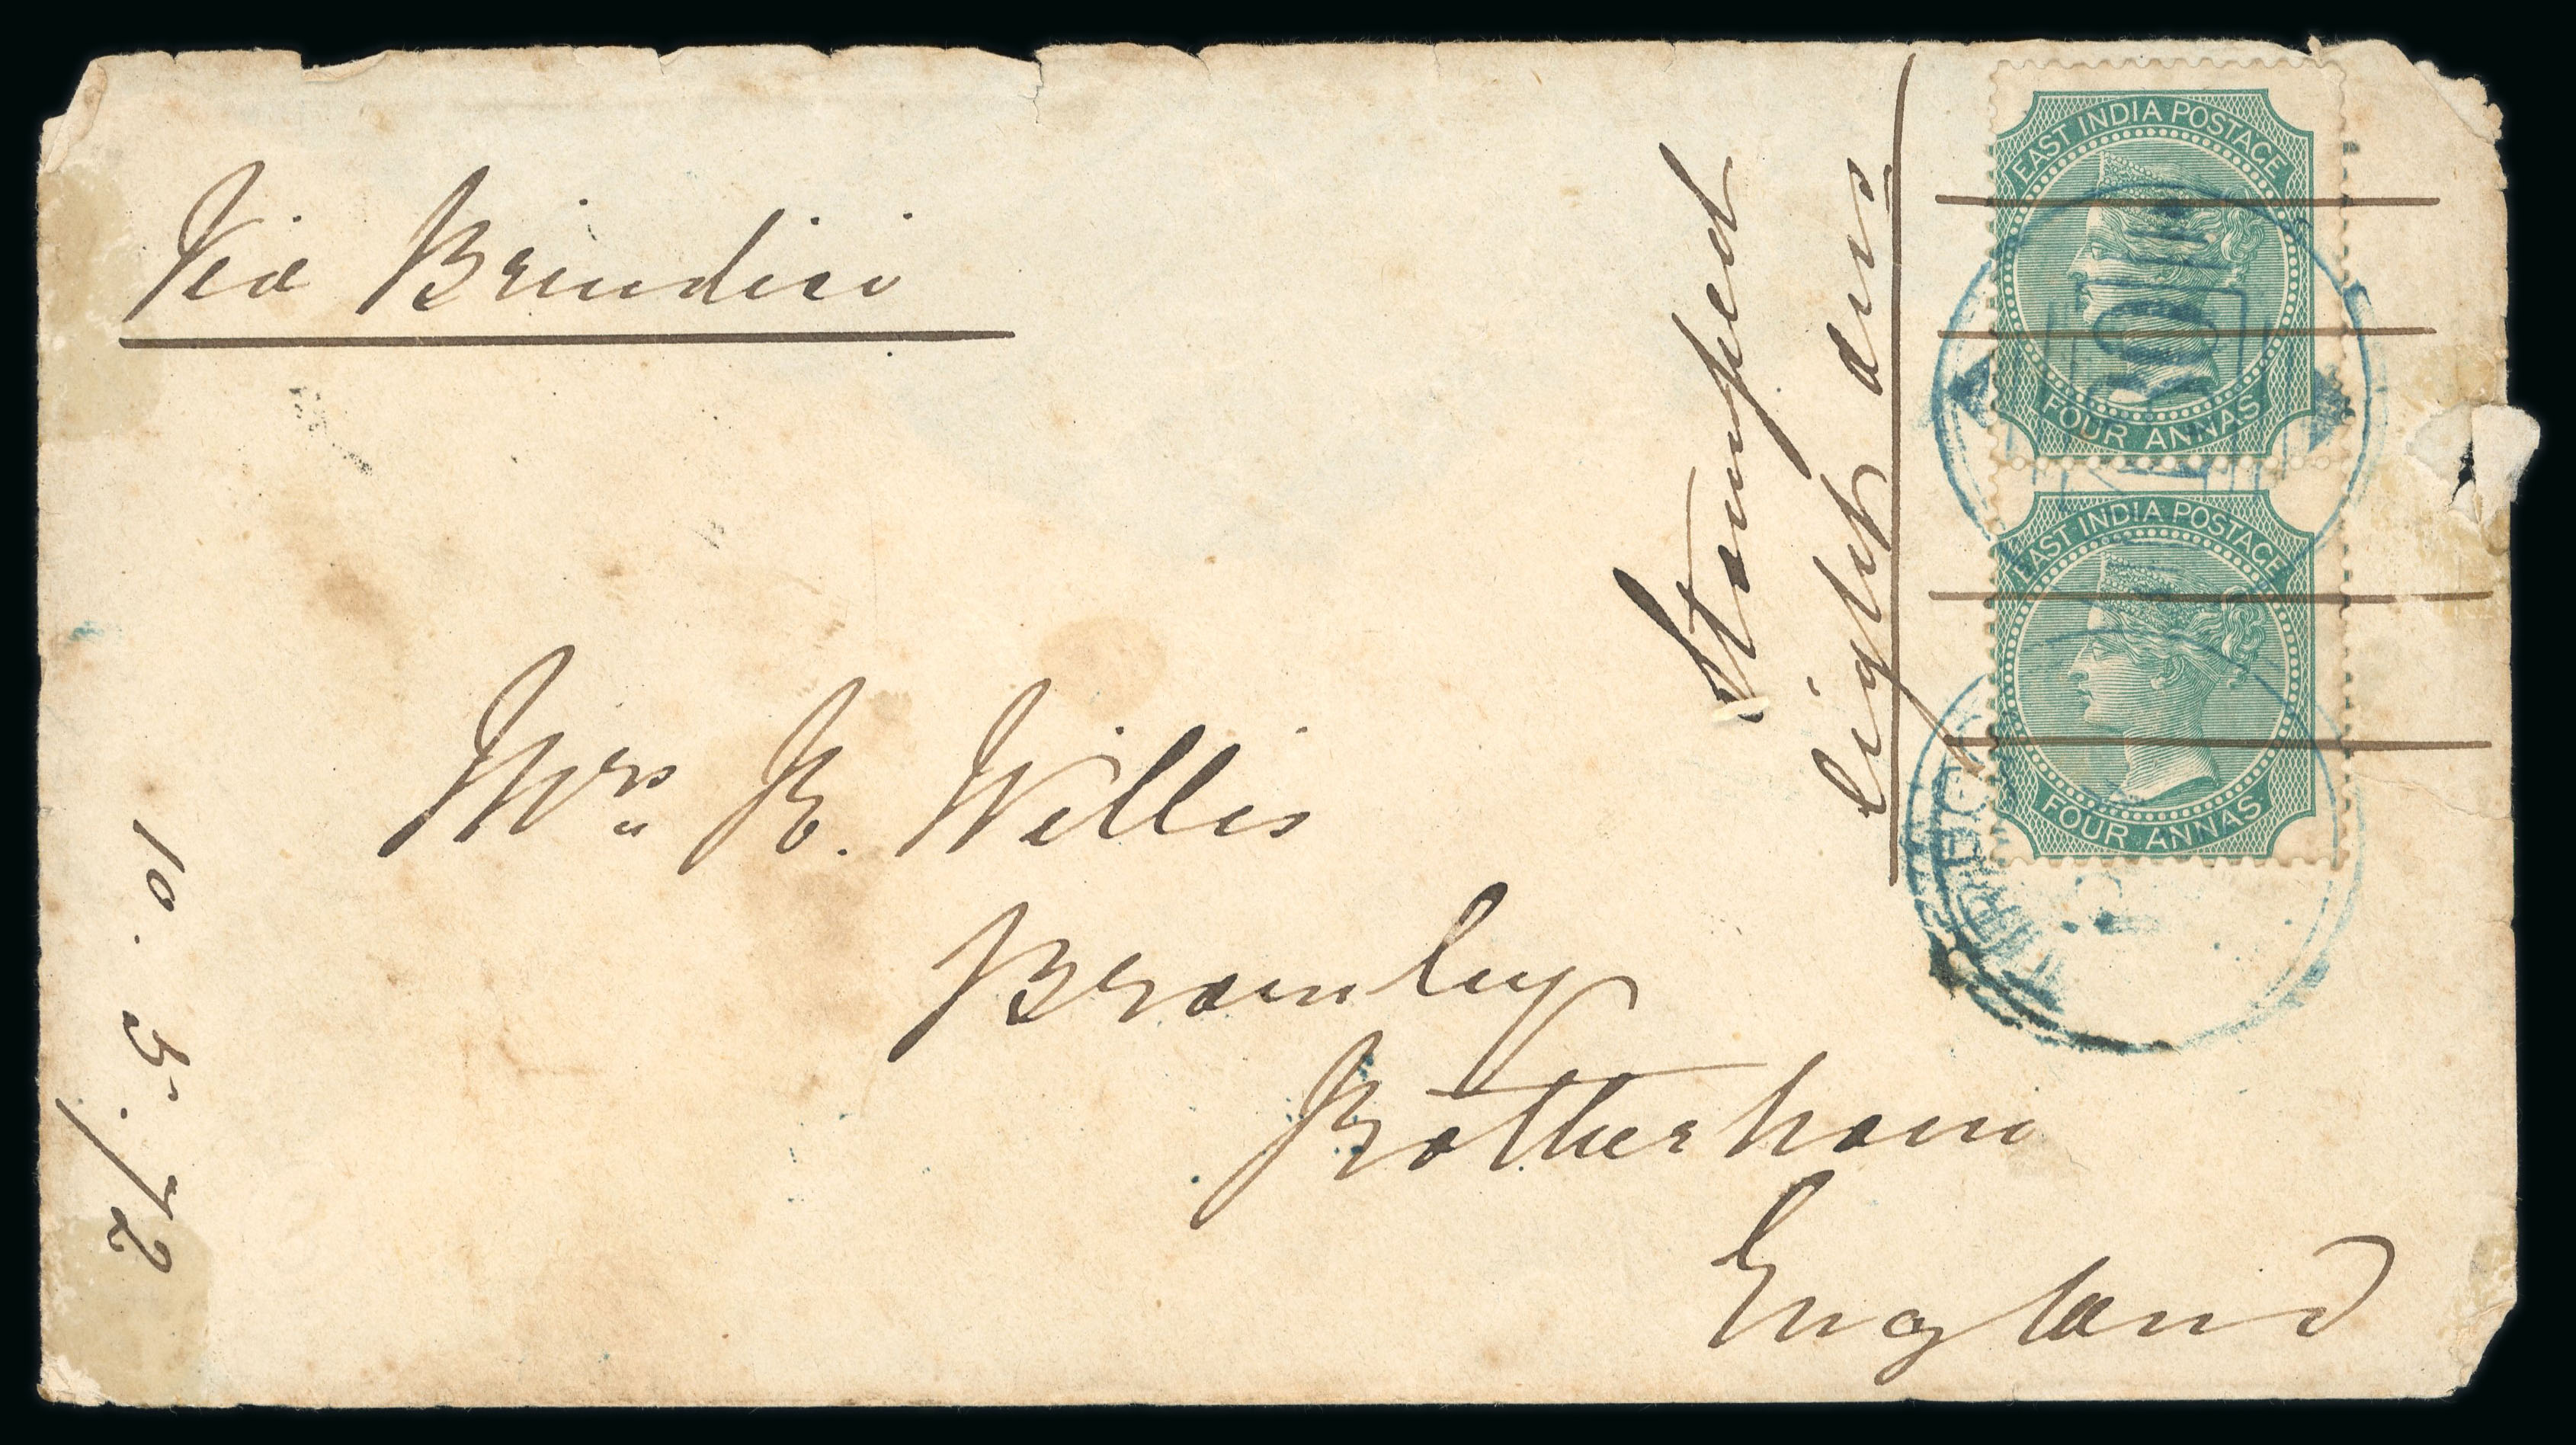 Via Brindisi
Stamped
eight ans
EAST INDIA POSTAGE
FOUR ANNAS
EAST INDIA POSTAGE
FOUR ANNAS
Mrs R. Willis
Bramley
Rotherham
England
10. 5. /72